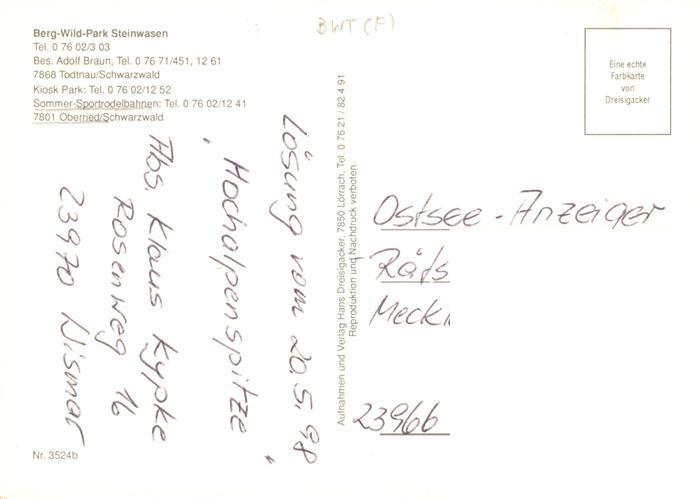 BWT (F)
Berg-Wild-Park Steinwasen
Tel. 0 76 02/3 03
Bes. Adolf Braun, Tel. 0 76 71/451, 12 61
7868 Todtnau/Schwarzwald
Kiosk Park: Tel. 0 76 02/12 52
Sommer-Sportrodelbahnen: Tel. 0 76 02/12 41
7801 Oberried/Schwarzwald
Lösung vom 20.5.98
"Hochalpenspitze"
Abs. Klaus Kypke
Rosenweg 16
23970 Wismar
Nr. 3524b
Aufnahmen und Verlag Hans Dreisigacker, 7850 Lörrach, Tel. 0 76 21 / 82 4 91
Reproduktion und Nachdruck verboten.
Eine echte
Farbkarte
von
Dreisigacker
Ostsee-Anzeiger
Räts
Meckl
23966